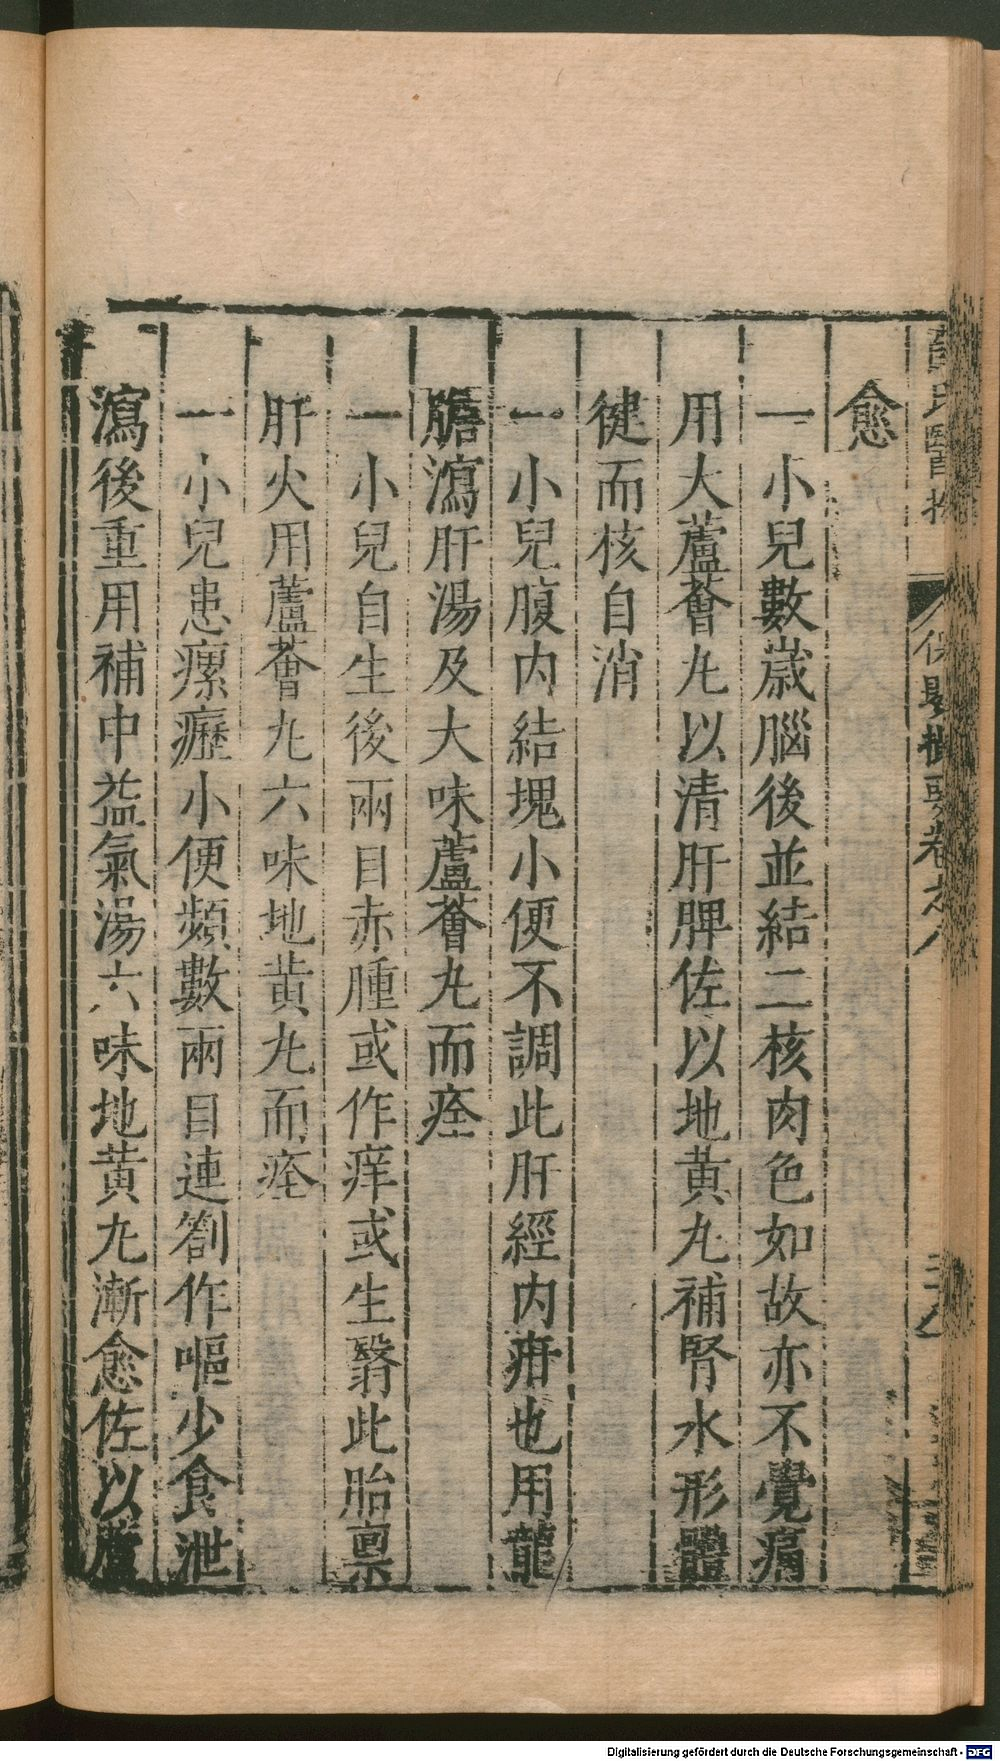 薛氏醫按
保嬰撮要卷之八
愈
一小兒數歲腦後並結二核肉色如故亦不覺痛
用大蘆薈九以清肝脾佐以地黄九補腎水形體
徤而核自消
一小兒腹内結塊小便不調此肝經内疳也用龍
膽瀉肝湯及大味蘆薈九而痊
一小兒自生後兩目赤腫或作痒或生翳此胎禀
肝火用蘆薈九六味地黄九而痊
一小兒患瘰癧小便頻數兩目連劄作嘔少食泄
瀉後重用補中益氣湯六味地黄九漸愈佐以蘆
Digitalisierung gefördert durch die Deutsche Forschungsgemeinschaft - DFG